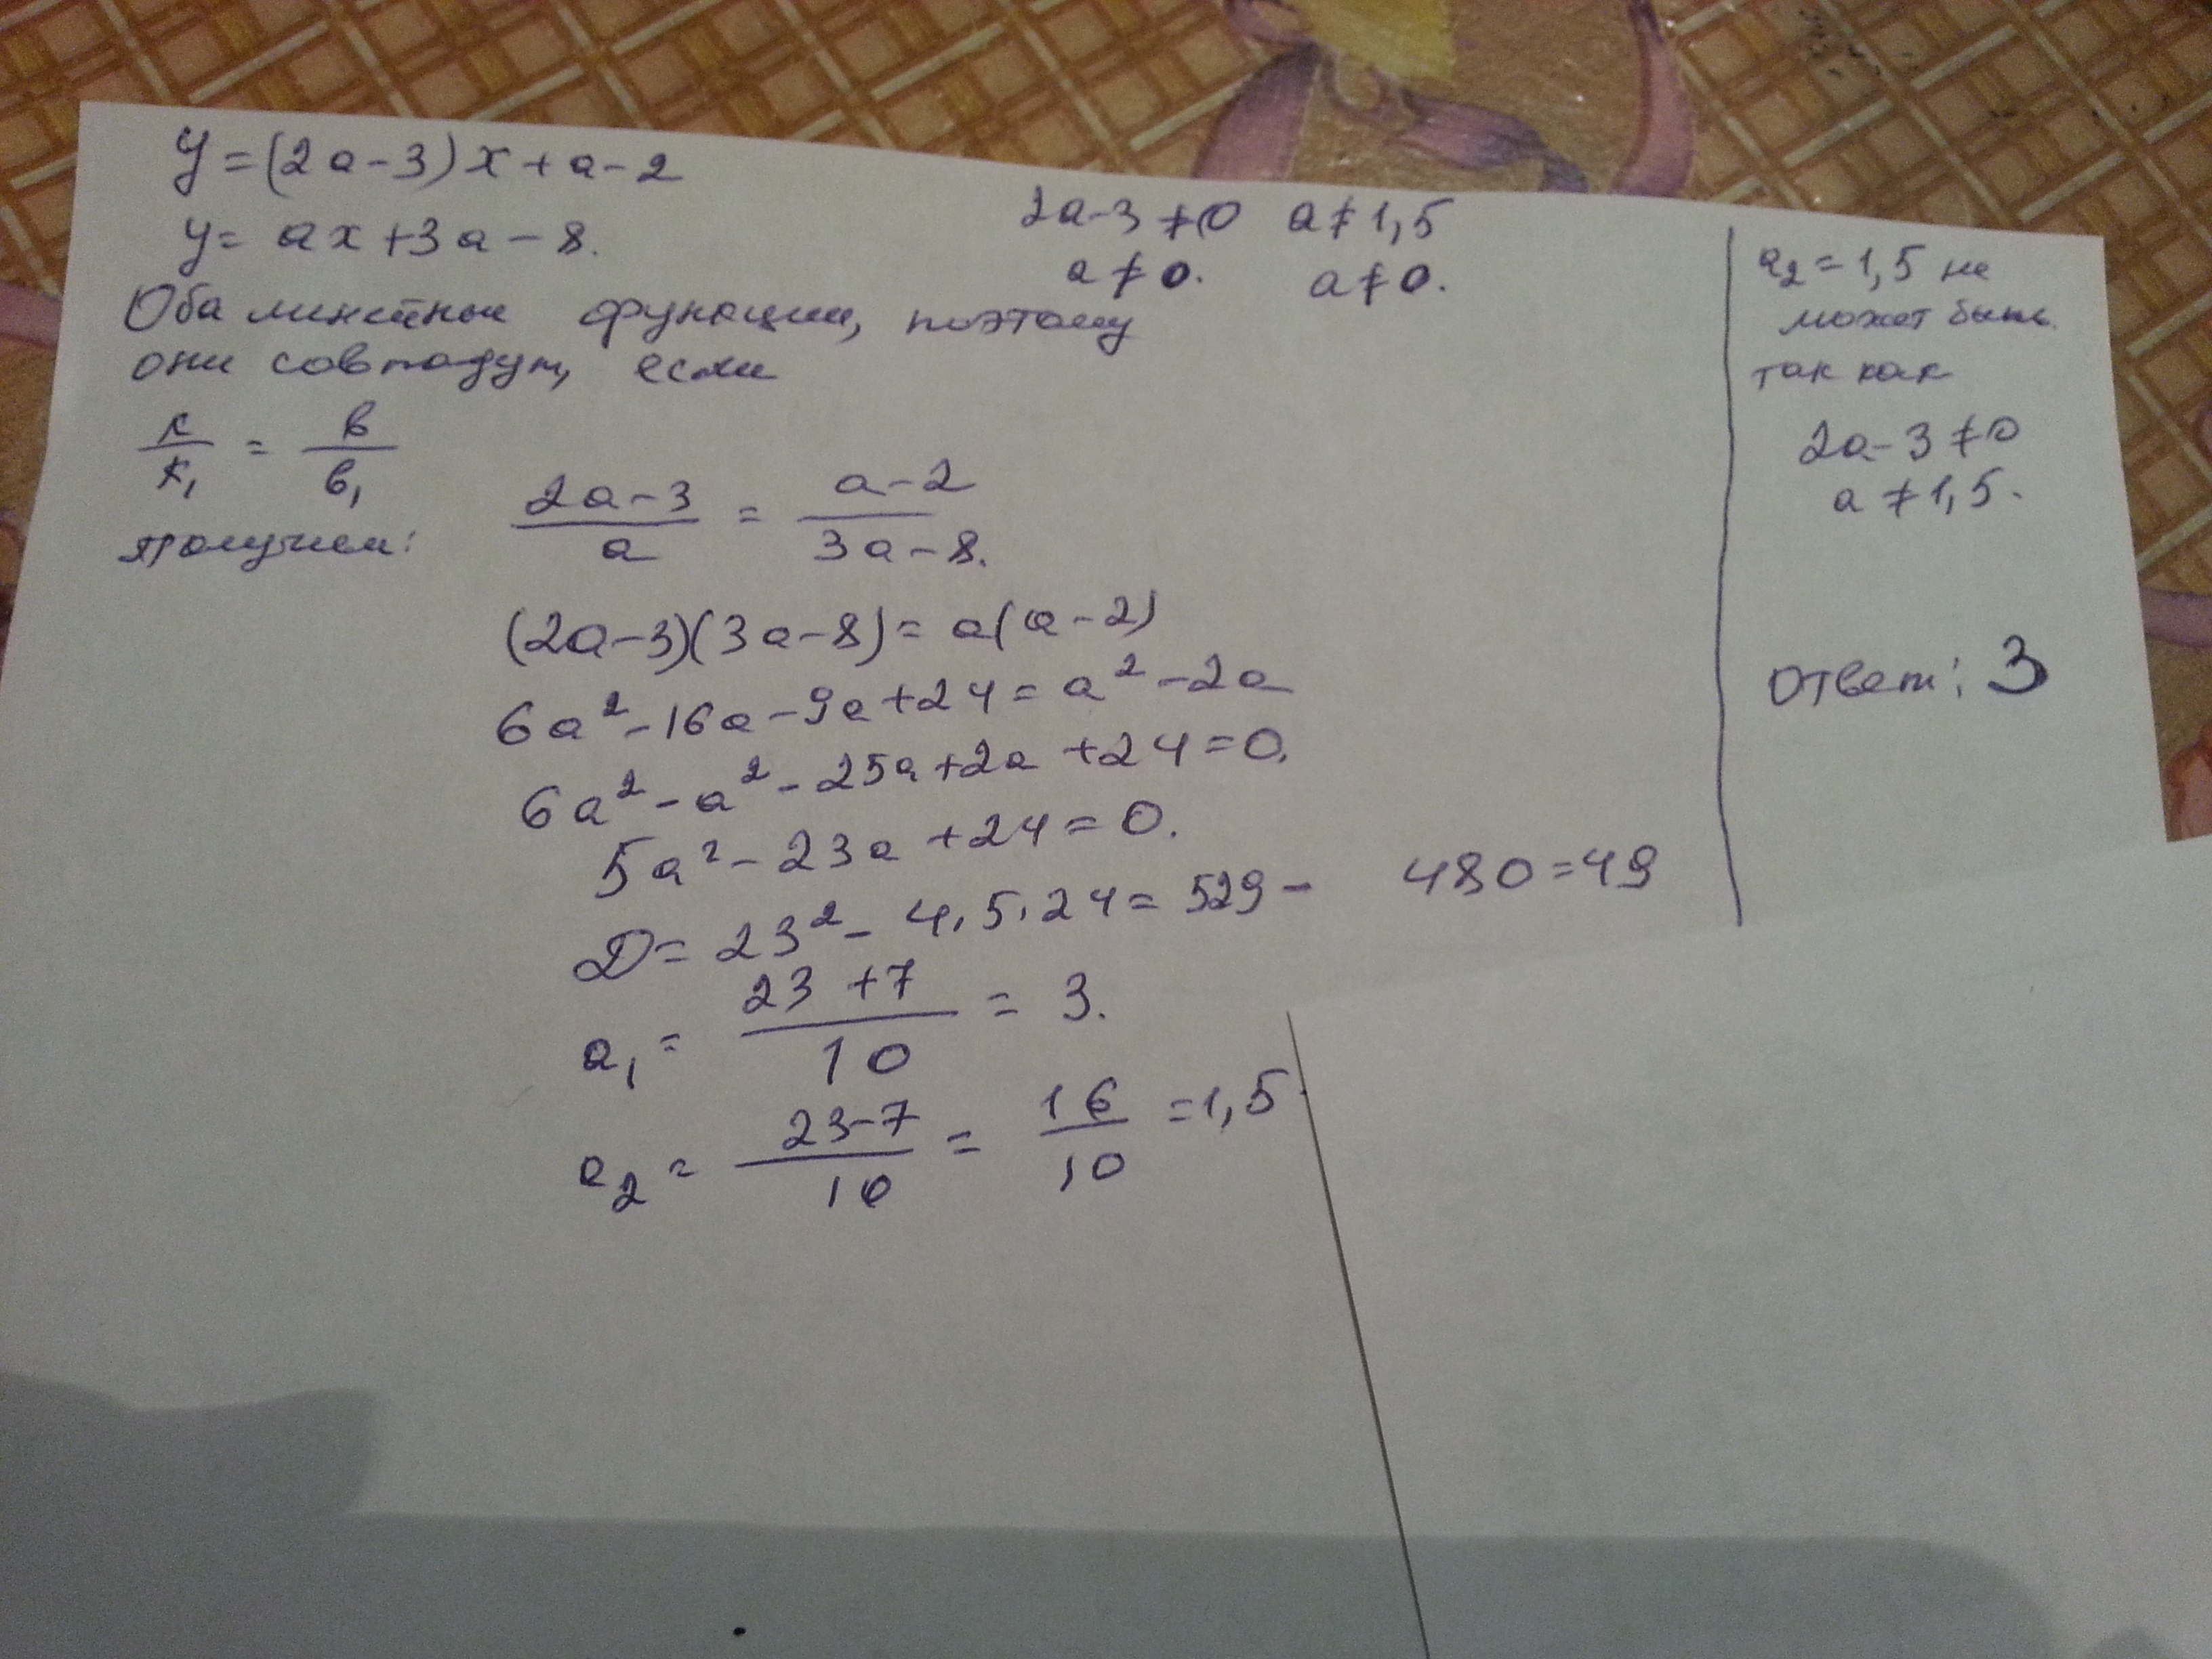 y=(2a-3)x+a-2
y= ax+3a-8.
2a-3≠0 a≠1,5
a≠0. a≠0.
Оба линейные функции, поэтому
они совпадут, если
к/к₁ = в/в₁
получем: (2a-3)/a = (a-2)/(3a-8).
(2a-3)(3a-8)=a(a-2)
6a²-16a-9a+24=a²-2a
6a²-a²-25a+2a+24=0.
5a²-23a+24=0.
D=23²-4.5.24=529- 480=49
a₁= (23+7)/10 = 3.
a₂= (23-7)/10 = 16/10 =1,5.
a₂=1,5 не
может быть.
так как
2a-3≠0
a≠1,5.
Ответ: 3